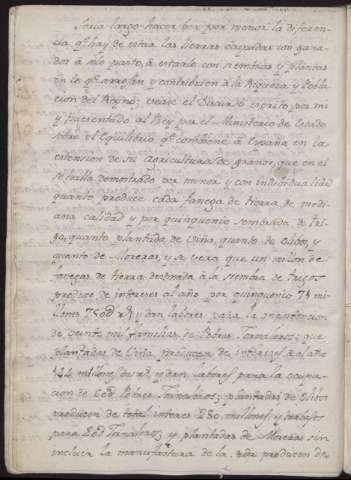 Seria largo hacer ver por menor la diferen-
cia qe. hay de estar las tierras ocupadas con gana-
dos à mio pasto, à estarlo con siembras y plantas
en lo qe. arraglan y contribuien à la Riqueza y Pobla-
cion del Reyno; vease el Discurso escrito por mi
y presentado al Rey por el Ministerio de Estado
sobre el Equilibrio qe. combiene à España en la
extension de su agricultura de granos, que en el
se halla demostrado por menor y con individualidad
quanto produce cada fanega de tierra de medi-
ana calidad y por quinquenio sembrada de tri-
go, quanto plantada de viña, quanto de olibos, y
quanto de Moreras, y se vera que un millon de
fanegas de tierra destinada à la siembra de trigos
produce de intereses al año por quinquenio 74 mi-
llones 750@ rs. y dan labores para la manutencion
de veinte mil familias de Pobres Jornaleros; que
plantadas de Viña, producen de intereses al año
 millones de rs. y dan labores para la ocupa-
cion de 60@ Pobres Jornaleros; plantadas de Olibos
producen de total interes 250 millones, y trabajos
para 20@ Jornaleros; y plantadas de Moreras sin
incluir la manufactura de la seda producen de